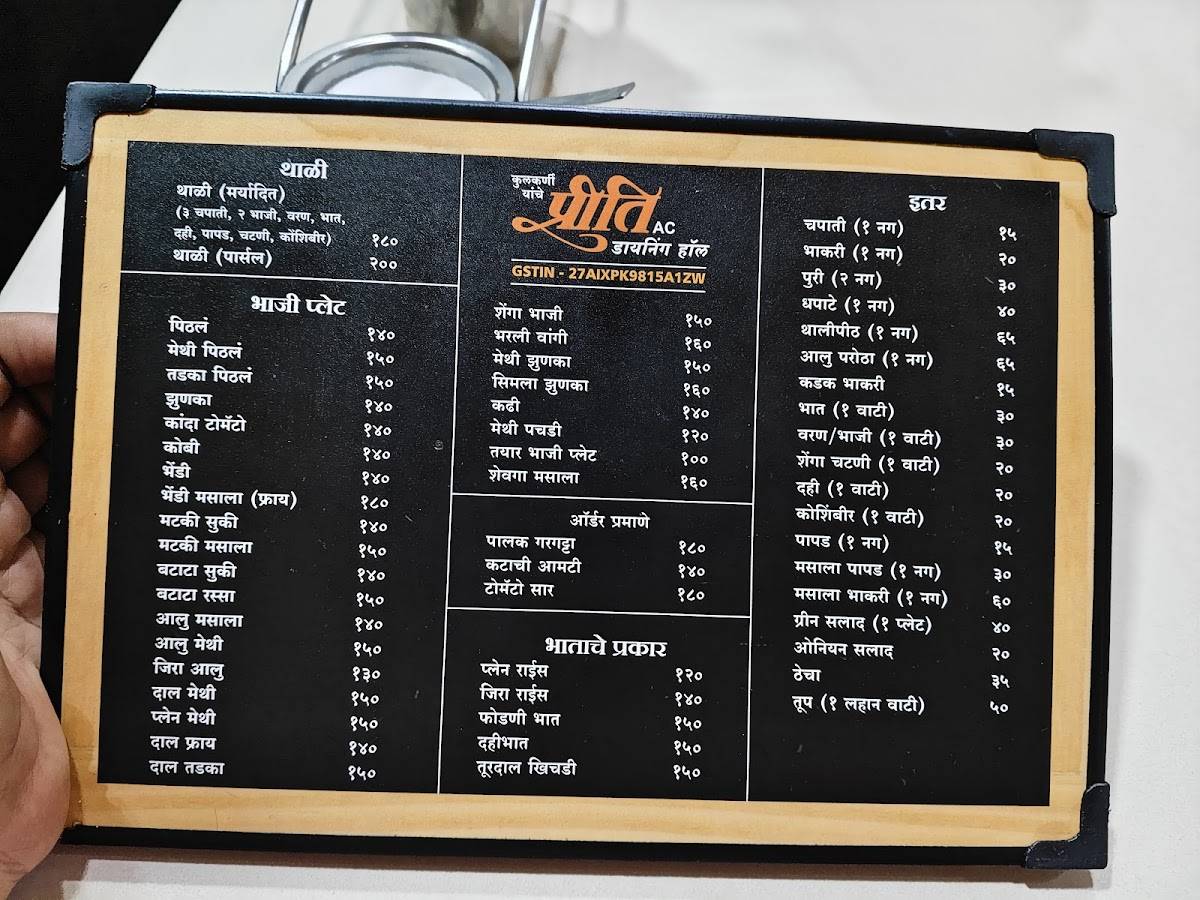 थाळी
थाळी (मर्यादित)
(३ चपाती, २ भाजी, वरण, भात,
दही, पापड, चटणी, कोंशिबीर) १८०
थाळी (पार्सल) २००
भाजी प्लेट
पिठलं १४०
मेथी पिठलं १५०
तडका पिठलं १५०
झुणका १४०
कांदा टोमॅटो १४०
कोबी १४०
भेंडी १४०
भेंडी मसाला (फ्राय) १८०
मटकी सुकी १४०
मटकी मसाला १५०
बटाटा सुकी १४०
बटाटा रस्सा १५०
आलु मसाला १४०
आलु मेथी १५०
जिरा आलु १३०
दाल मेथी १५०
प्लेन मेथी १५०
दाल फ्राय १४०
दाल तडका १५०
कुलकर्णी
यांचे
प्रीति AC
डायनिंग हॉल
GSTIN - 27AIXPK9815A1ZW
शेंगा भाजी १५०
भरली वांगी १६०
मेथी झुणका १५०
सिमला झुणका १६०
कढी १४०
मेथी पचडी १२०
तयार भाजी प्लेट १००
शेवगा मसाला १६०
ऑर्डर प्रमाणे
पालक गरगट्टा १८०
कटाची आमटी १४०
टोमॅटो सार १८०
भाताचे प्रकार
प्लेन राईस १२०
जिरा राईस १४०
फोडणी भात १५०
दहीभात १५०
तूरदाल खिचडी १५०
इतर
चपाती (१ नग) १५
भाकरी (१ नग) २०
पुरी (२ नग) ३०
धपाटे (१ नग) ४०
थालीपीठ (१ नग) ६५
आलु परोठा (१ नग) ६५
कडक भाकरी १५
भात (१ वाटी) ३०
वरण/भाजी (१ वाटी) ३०
शेंगा चटणी (१ वाटी) २०
दही (१ वाटी) २०
कोशिंबीर (१ वाटी) २०
पापड (१ नग) १५
मसाला पापड (१ नग) ३०
मसाला भाकरी (१ नग) ६०
ग्रीन सलाद (१ प्लेट) ४०
ओनियन सलाद २०
ठेचा ३५
तूप (१ लहान वाटी) ५०